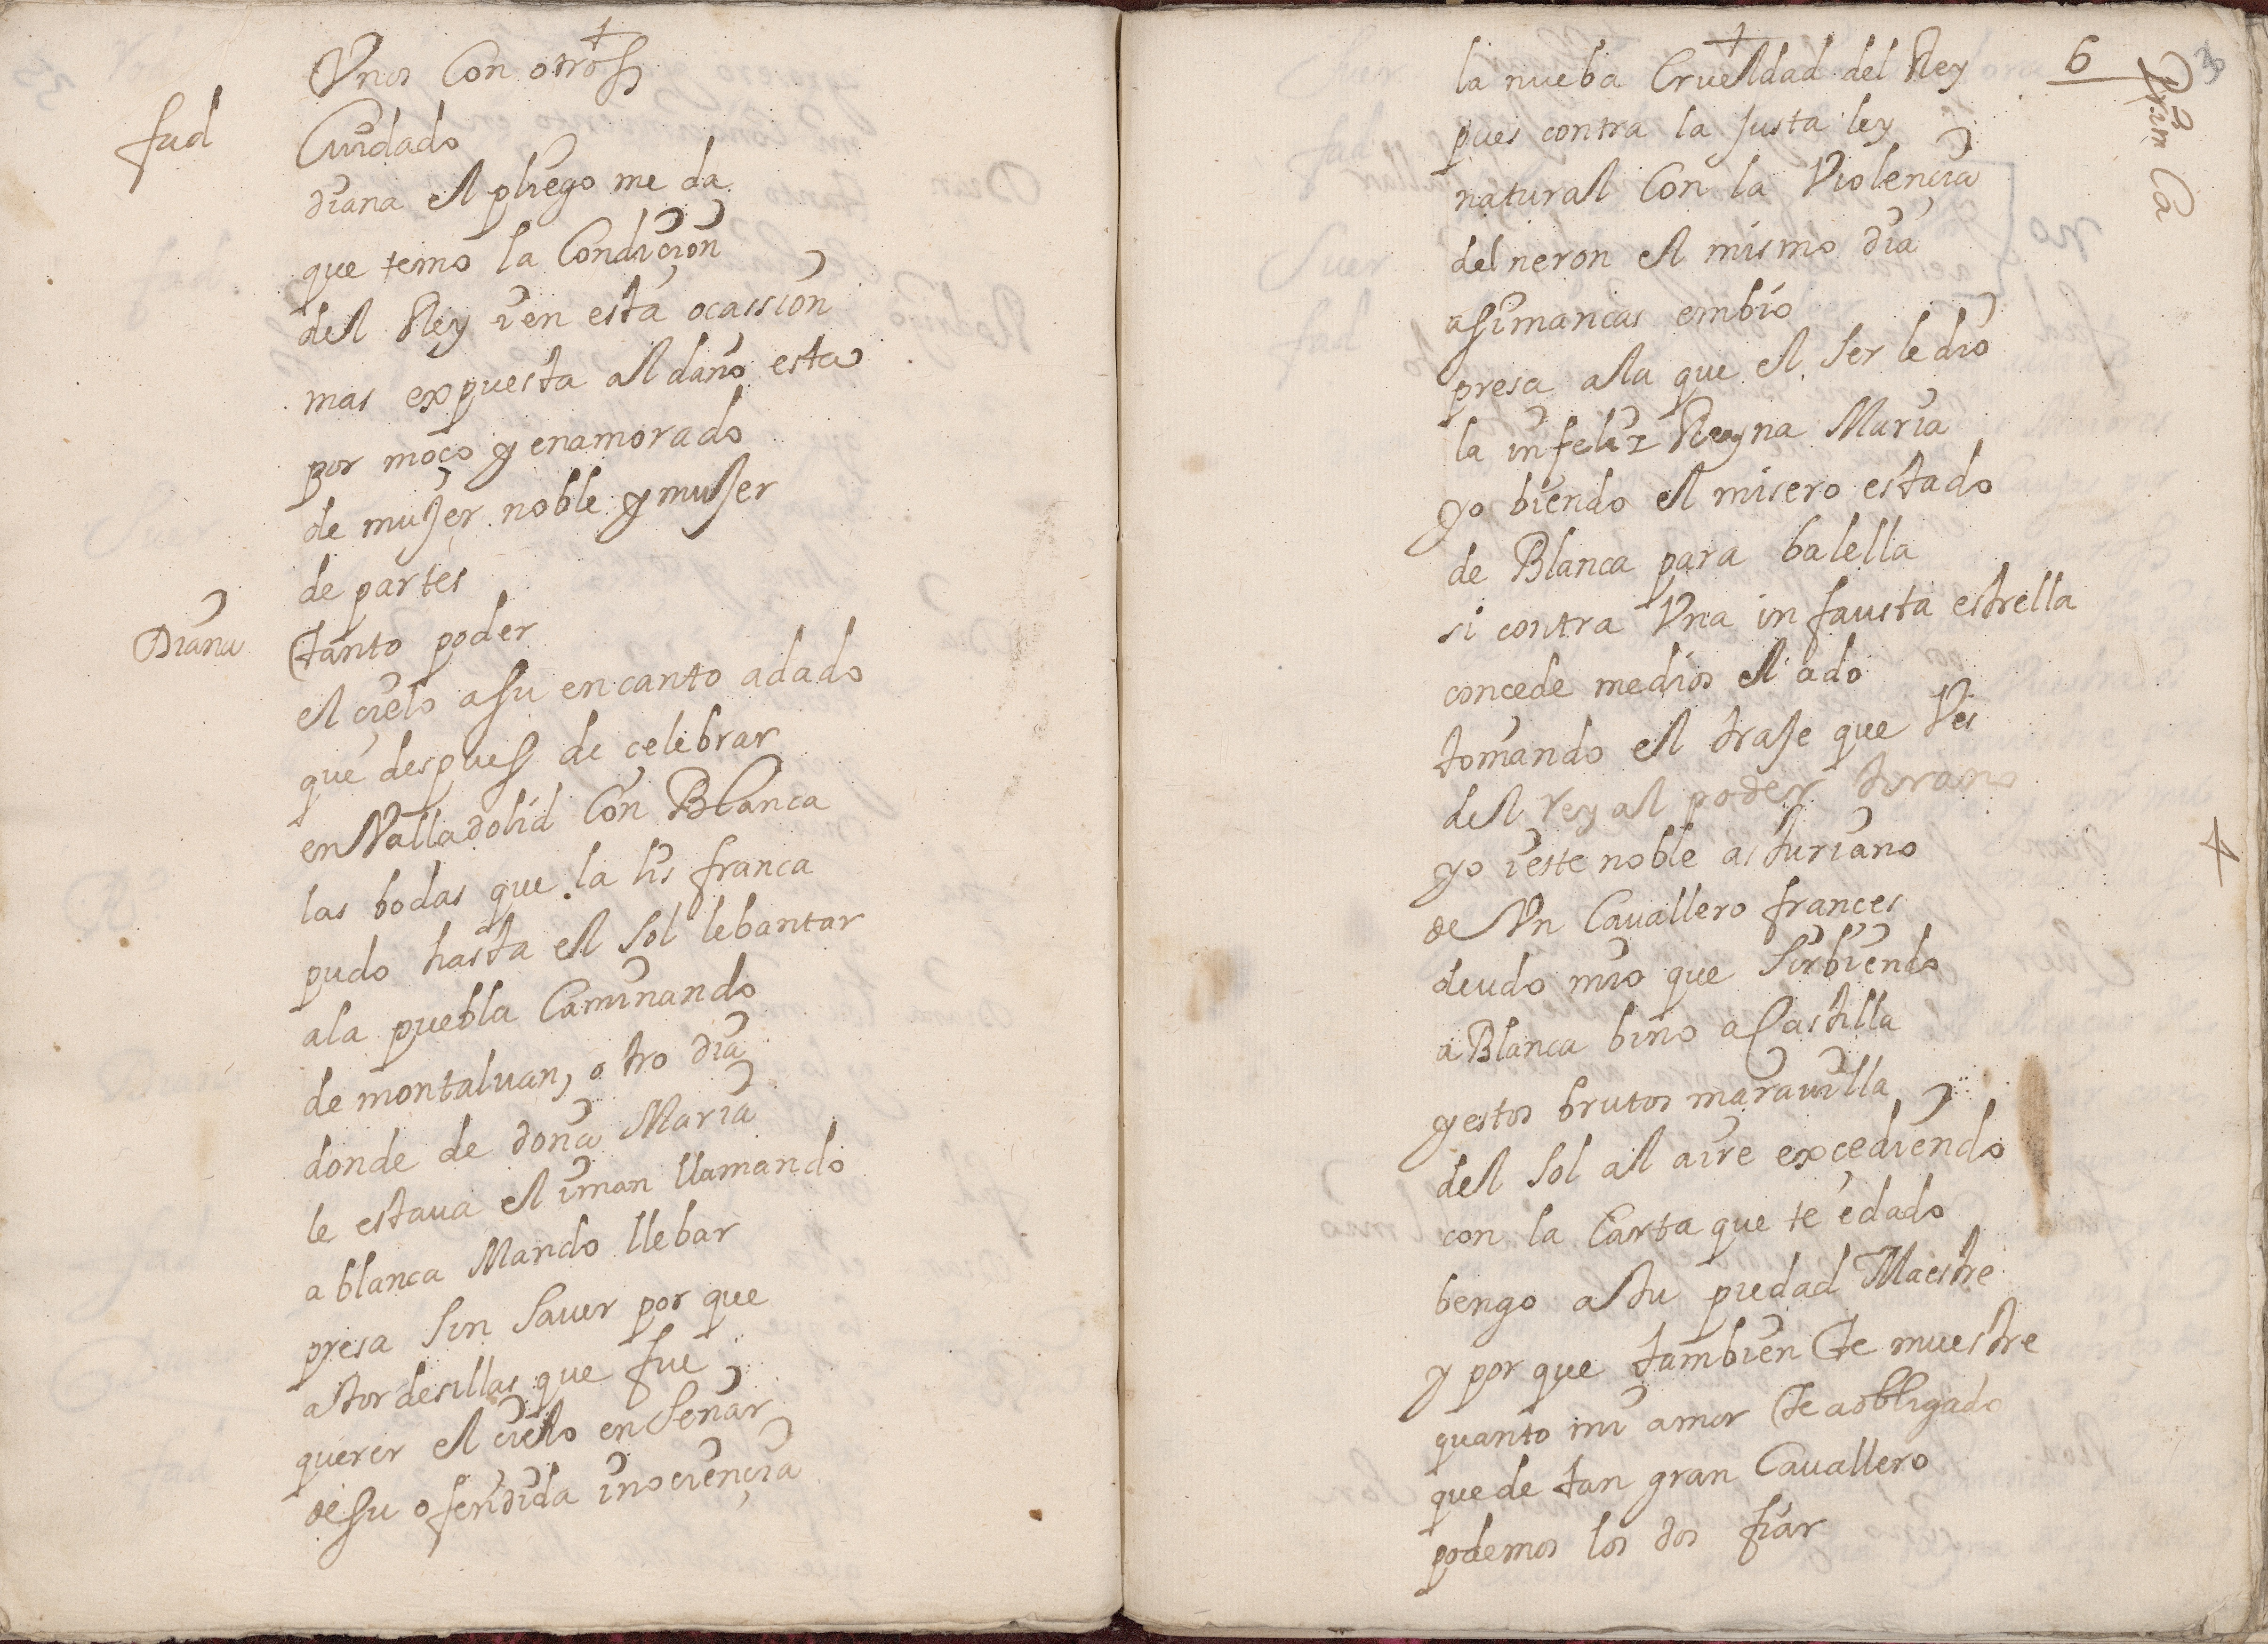 Vnos Con otros
fad Cuidado
diana el pliego me da
que temo la Condiçion
del Rey i en esta ocassion
mas expuesta al daño esta
por moço y enamorado
de mujer noble y mujer
de partes
Diana tanto poder
el çielo a su encanto a dado
que despues de çelebrar
en Valladolid Con Blanca
las bodas que la lis franca
pudo hasta el sol lebantar
a la puebla Caminando
de montaluan, otro dia
donde de doña Maria
le estaua el iman llamando
a blanca Mando llebar
presa sin sauer por que
a tordesillas que fue
querer el cielo enseñar
de su ofendida inoçiençia
6
Prim Ca
la nueba Crueldad del Rey
pues contra la justa ley
natural Con la Violençia
del neron el mismo dia
a simancas embio
presa a la que el ser le dio
la infeliz Reyna Maria
yo biendo el misero estado
de Blanca para balella
si contra Vna infausta estrella
concede medios el ado
tomando el traje que Ves
del rey al poder tirano
yo i este noble asturiano
de Vn Cauallero frances
deudo mio que sirbiendo
a Blanca bino a Castilla
y estos brutos marauilla
del sol al aire excediendo
con la Carta que te e dado
bengo a tu piedad Maestre
y por que tambien te muestre
quanto mi amor te a obligado
que de tan gran Cauallero
podemos los dos fiar